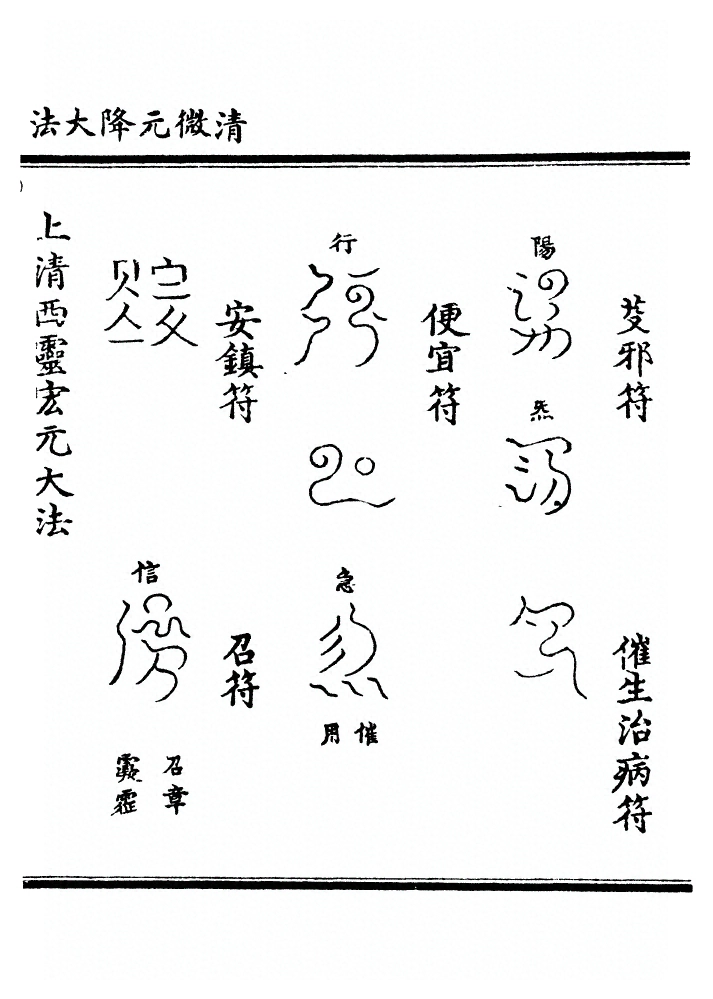 清微元降大法
芟邪符
陽
炁
催生治病符
便宜符
行
急
催用
安鎮符
召符
召章
信
上清西靈宏元大法